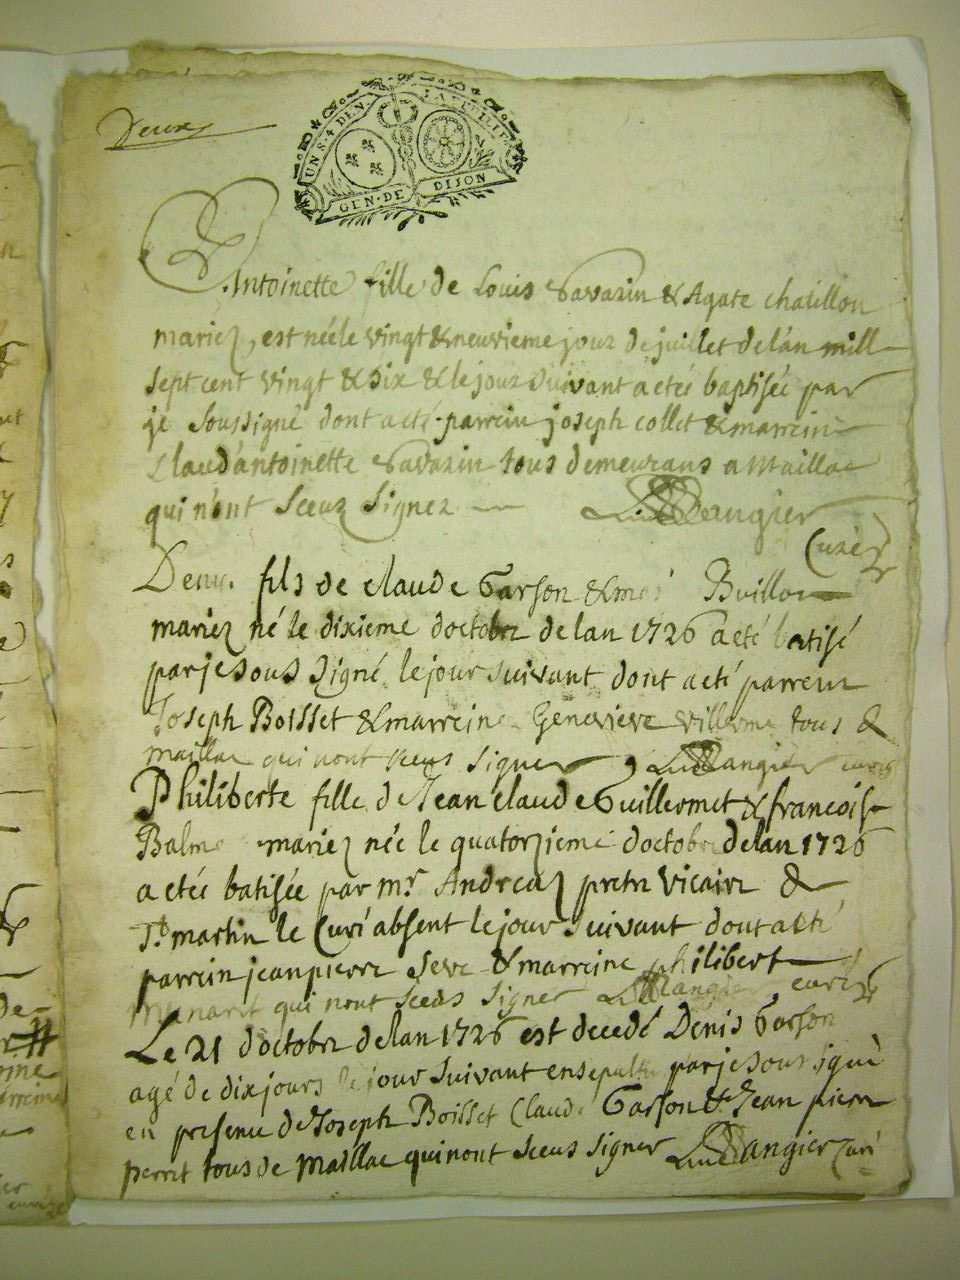 Deux
UN S. 4 DEN. LA FEUILLE
GEN. DE DIJON
Antoinette fille de Louis Savarin & Agate chatillon
mariez, est néele vingt & neuvieme jour de juillet de lan mill
sept cent vingt & six & le jour suivant a eteé baptisée par
je soussigné dont acté parrein joseph collet & marreine
Claud'antoinette Savarin tous demeurans a Maillac
qui n'ont sceuz signez Langier
Curé
Denis fils de claude Garson & Buillou
mariez né le dixieme doctobre de lan 1726 a eté batisé
par je sous signé le jour suivant dont acté parrein
Joseph Boisset & marreine Genevieve villerme tous de
maillac qui nont sceus signer Langier curé
Philiberte fille de Jean claude Guillermet & francoise
Balme mariez née le quatorzieme doctobre de lan 1726
a etée batisée par mr. Andreaz pretre vicaire de
St. martin le Curé absent le jour suivant dont acté
parrein jean pierre seve & marreine philiberte
qui nont sceus signer Langier curé
Le 21 doctobre de lan 1726 est decedé Denis Garson
agé de dix jours le jour suivant ensepulturé par je sous signé
en presence de Joseph Boisset Claude Garson & Jean pierre
perret tous de maillac qui nont sceus signer Langier Curé